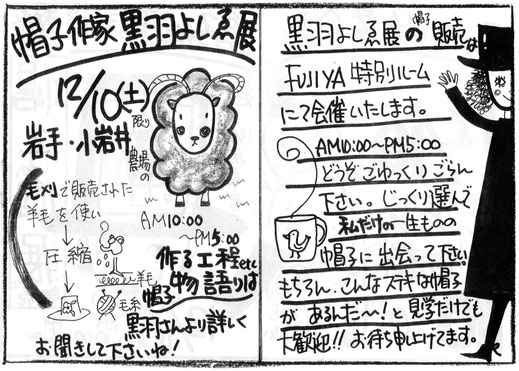 帽子作家 黒羽よしゑ展
12/10(土)限り
岩手・小岩井農場の
毛刈で販売された
羊毛を使い
圧縮
羊毛
毛糸
AM10:00
〜PM5:00
作る工程etc
帽子物語りは
黒羽さんより詳しく
お聞きして下さいね!
黒羽よしゑ展の帽子販売は
FUJIYA 特別ルーム
にて会催いたします。
AM10:00〜PM5:00
どうぞごゆっくりごらん
下さい。じっくり選んで
私だけの一生ものの
帽子に出会って下さい
もちろん、こんなステキな帽子
があるんだ〜!と見学だけでも
大歓迎!!お待ち申し上げてます。